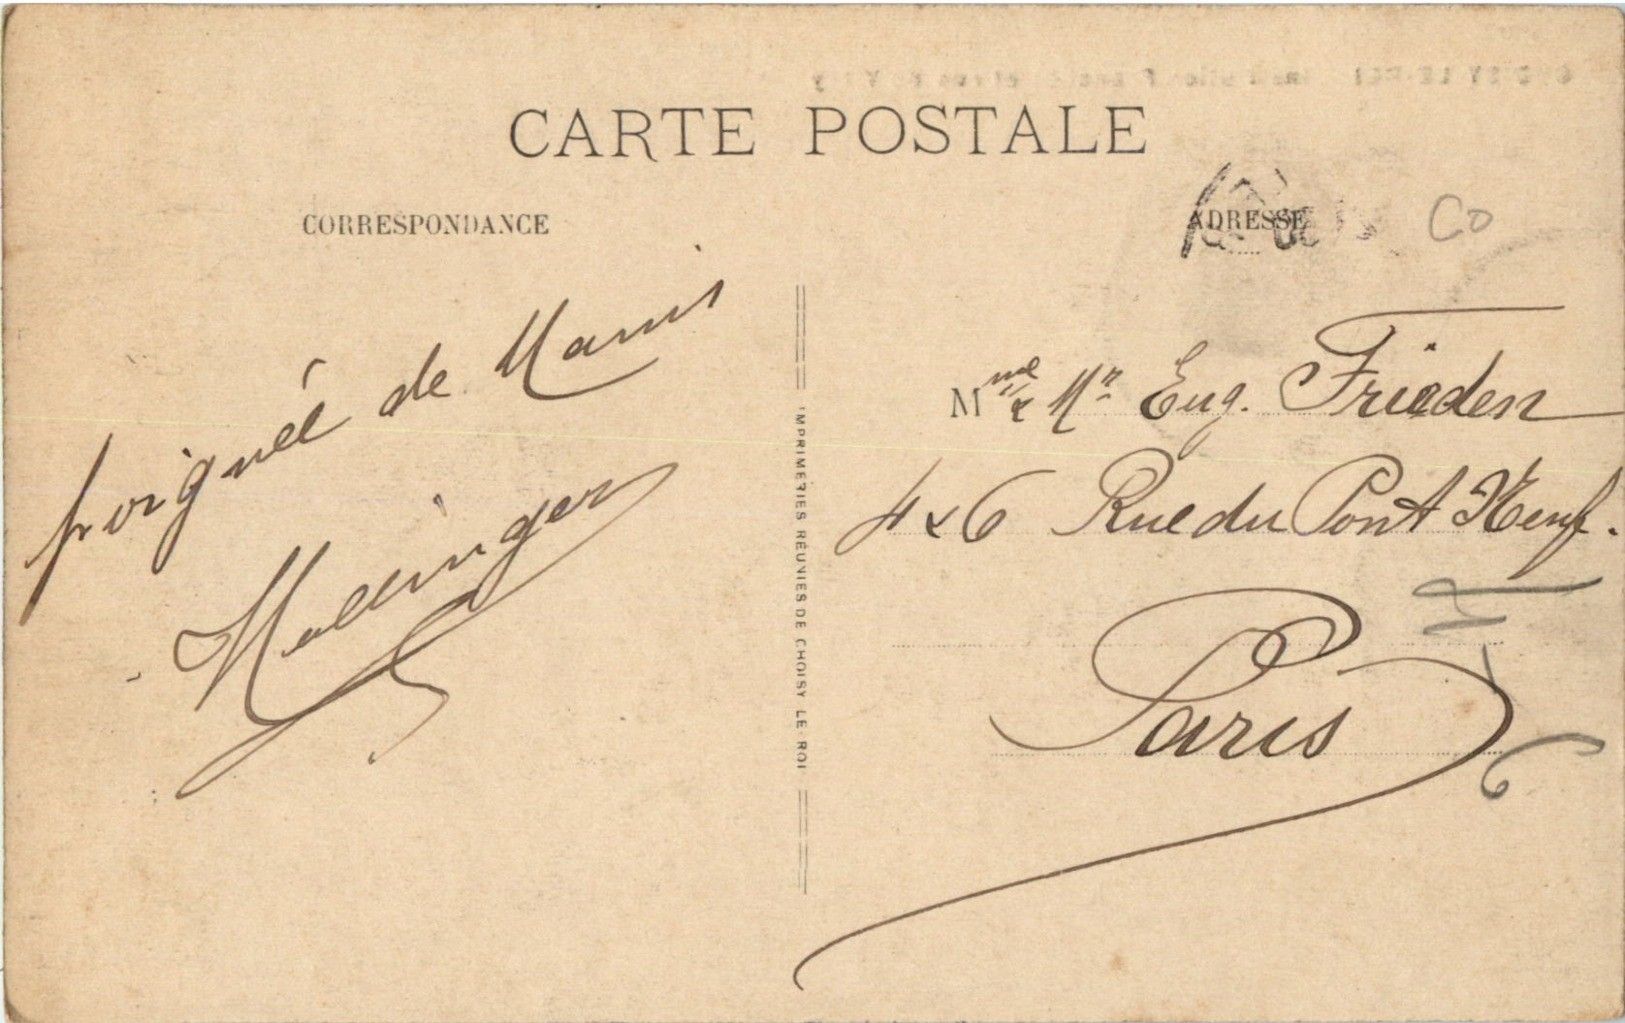 CARTE POSTALE
CORRESPONDANCE
ADRESSE
Co
poignée de Mains
IMPRIMERIES RÉUNIES DE CHOISY LE ROI
Mme & Mr Eug. Frieden
4 & 6 Rue du Pont Neuf.
Paris